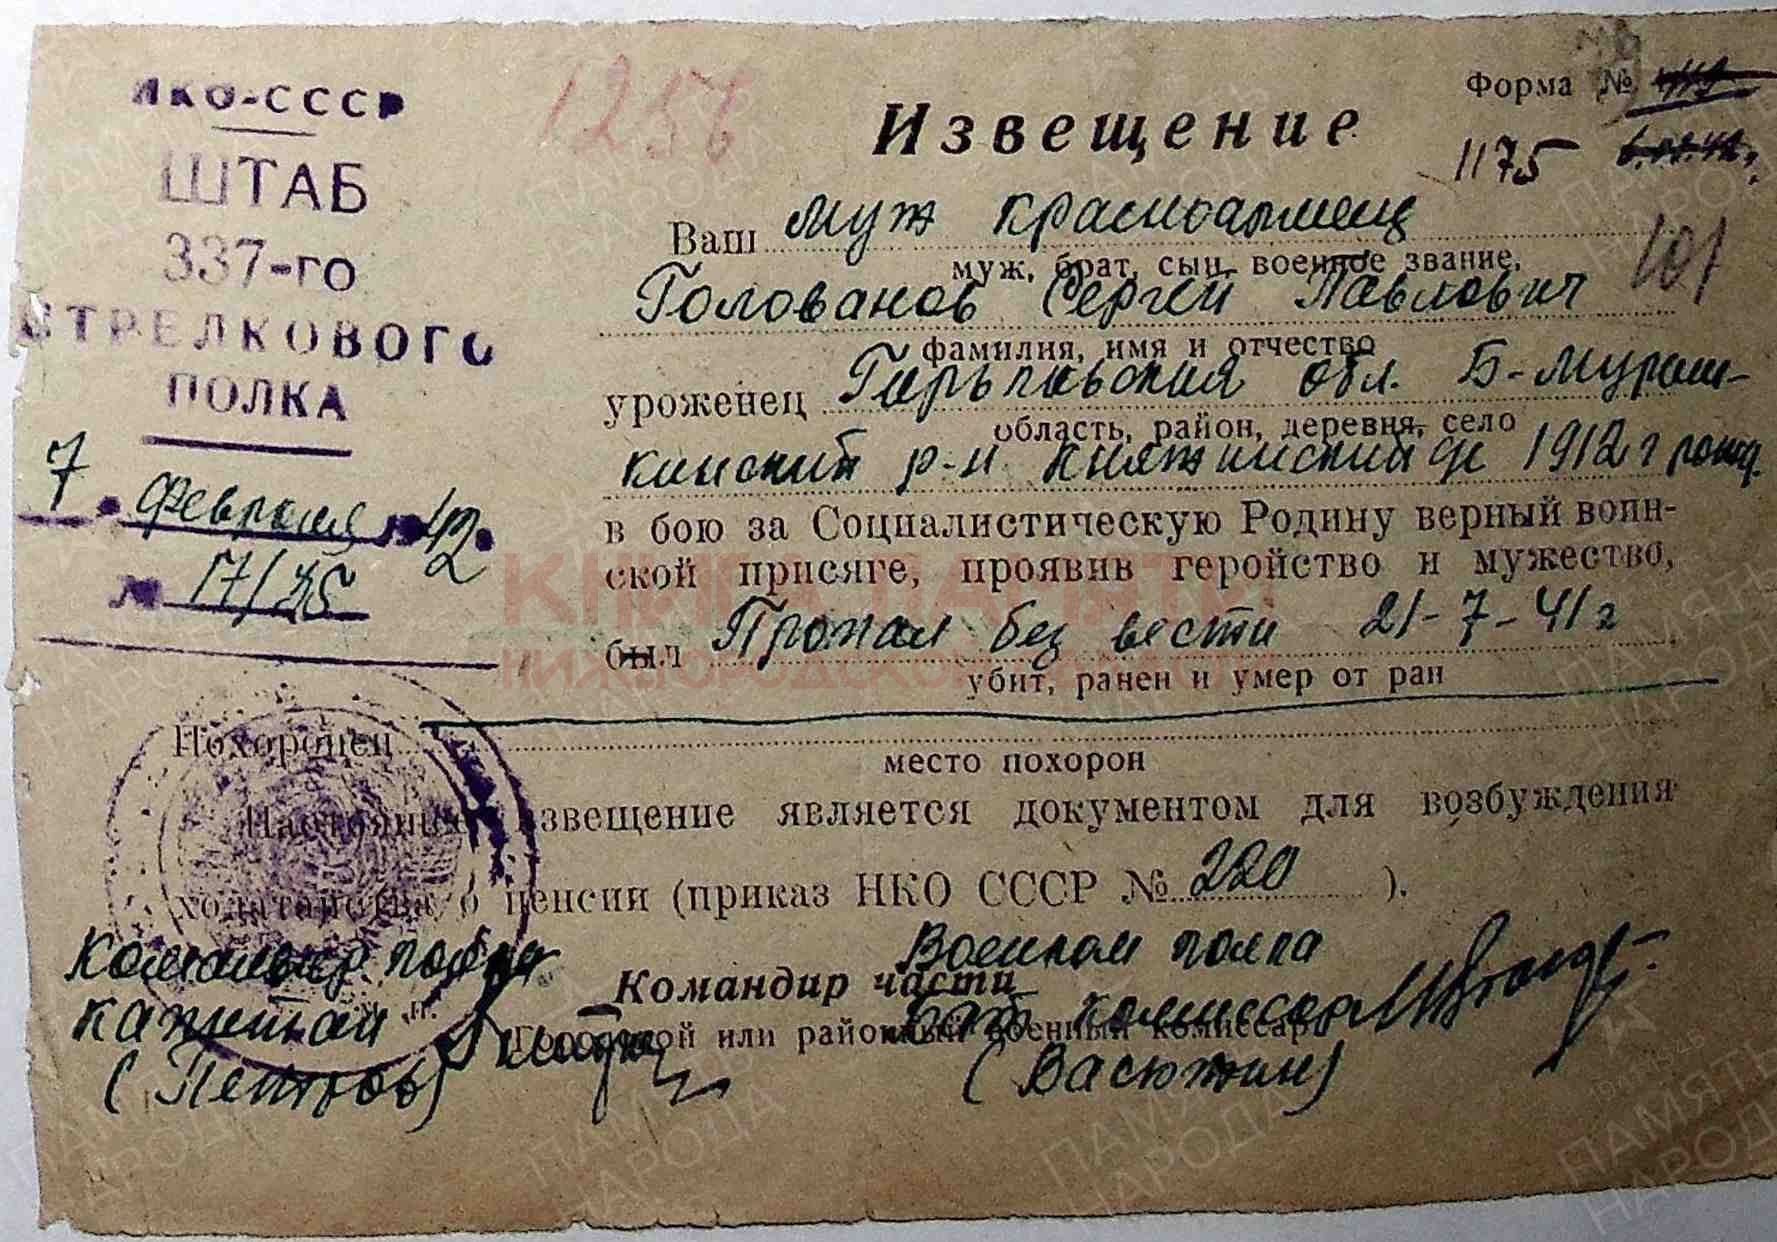 НКО-СССР
ШТАБ
337-го
СТРЕЛКОВОГО
ПОЛКА
7 февраля 42
№ 17/25
1256
Форма №
Извещение
1175
101
Ваш муж красноармеец
муж, брат, сын, военное звание,
Голованов Сергей Павлович
фамилия, имя и отчество
уроженец Горьковская обл. Б-Мураш-
область, район, деревня, село
кинский р-н Княжинский 1912 г рожд.
в бою за Социалистическую Родину верный воин-
ской присяге, проявив геройство и мужество,
был Пропал без вести 21-7-41 г
убит, ранен и умер от ран
Похоронен
место похорон
Настоящее извещение является документом для возбуждения
ходатайства о пенсии (приказ НКО СССР № 220 ).
Командир полка
капитан
(Петров)
Командир части
Военком полка
Бат комиссар
Городской или районный военный комиссар
(Васютин)
КНИГА ПАМЯТИ
НИЖЕГОРОДСКОЙ ОБЛАСТИ
ПАМЯТЬ
НАРОДА